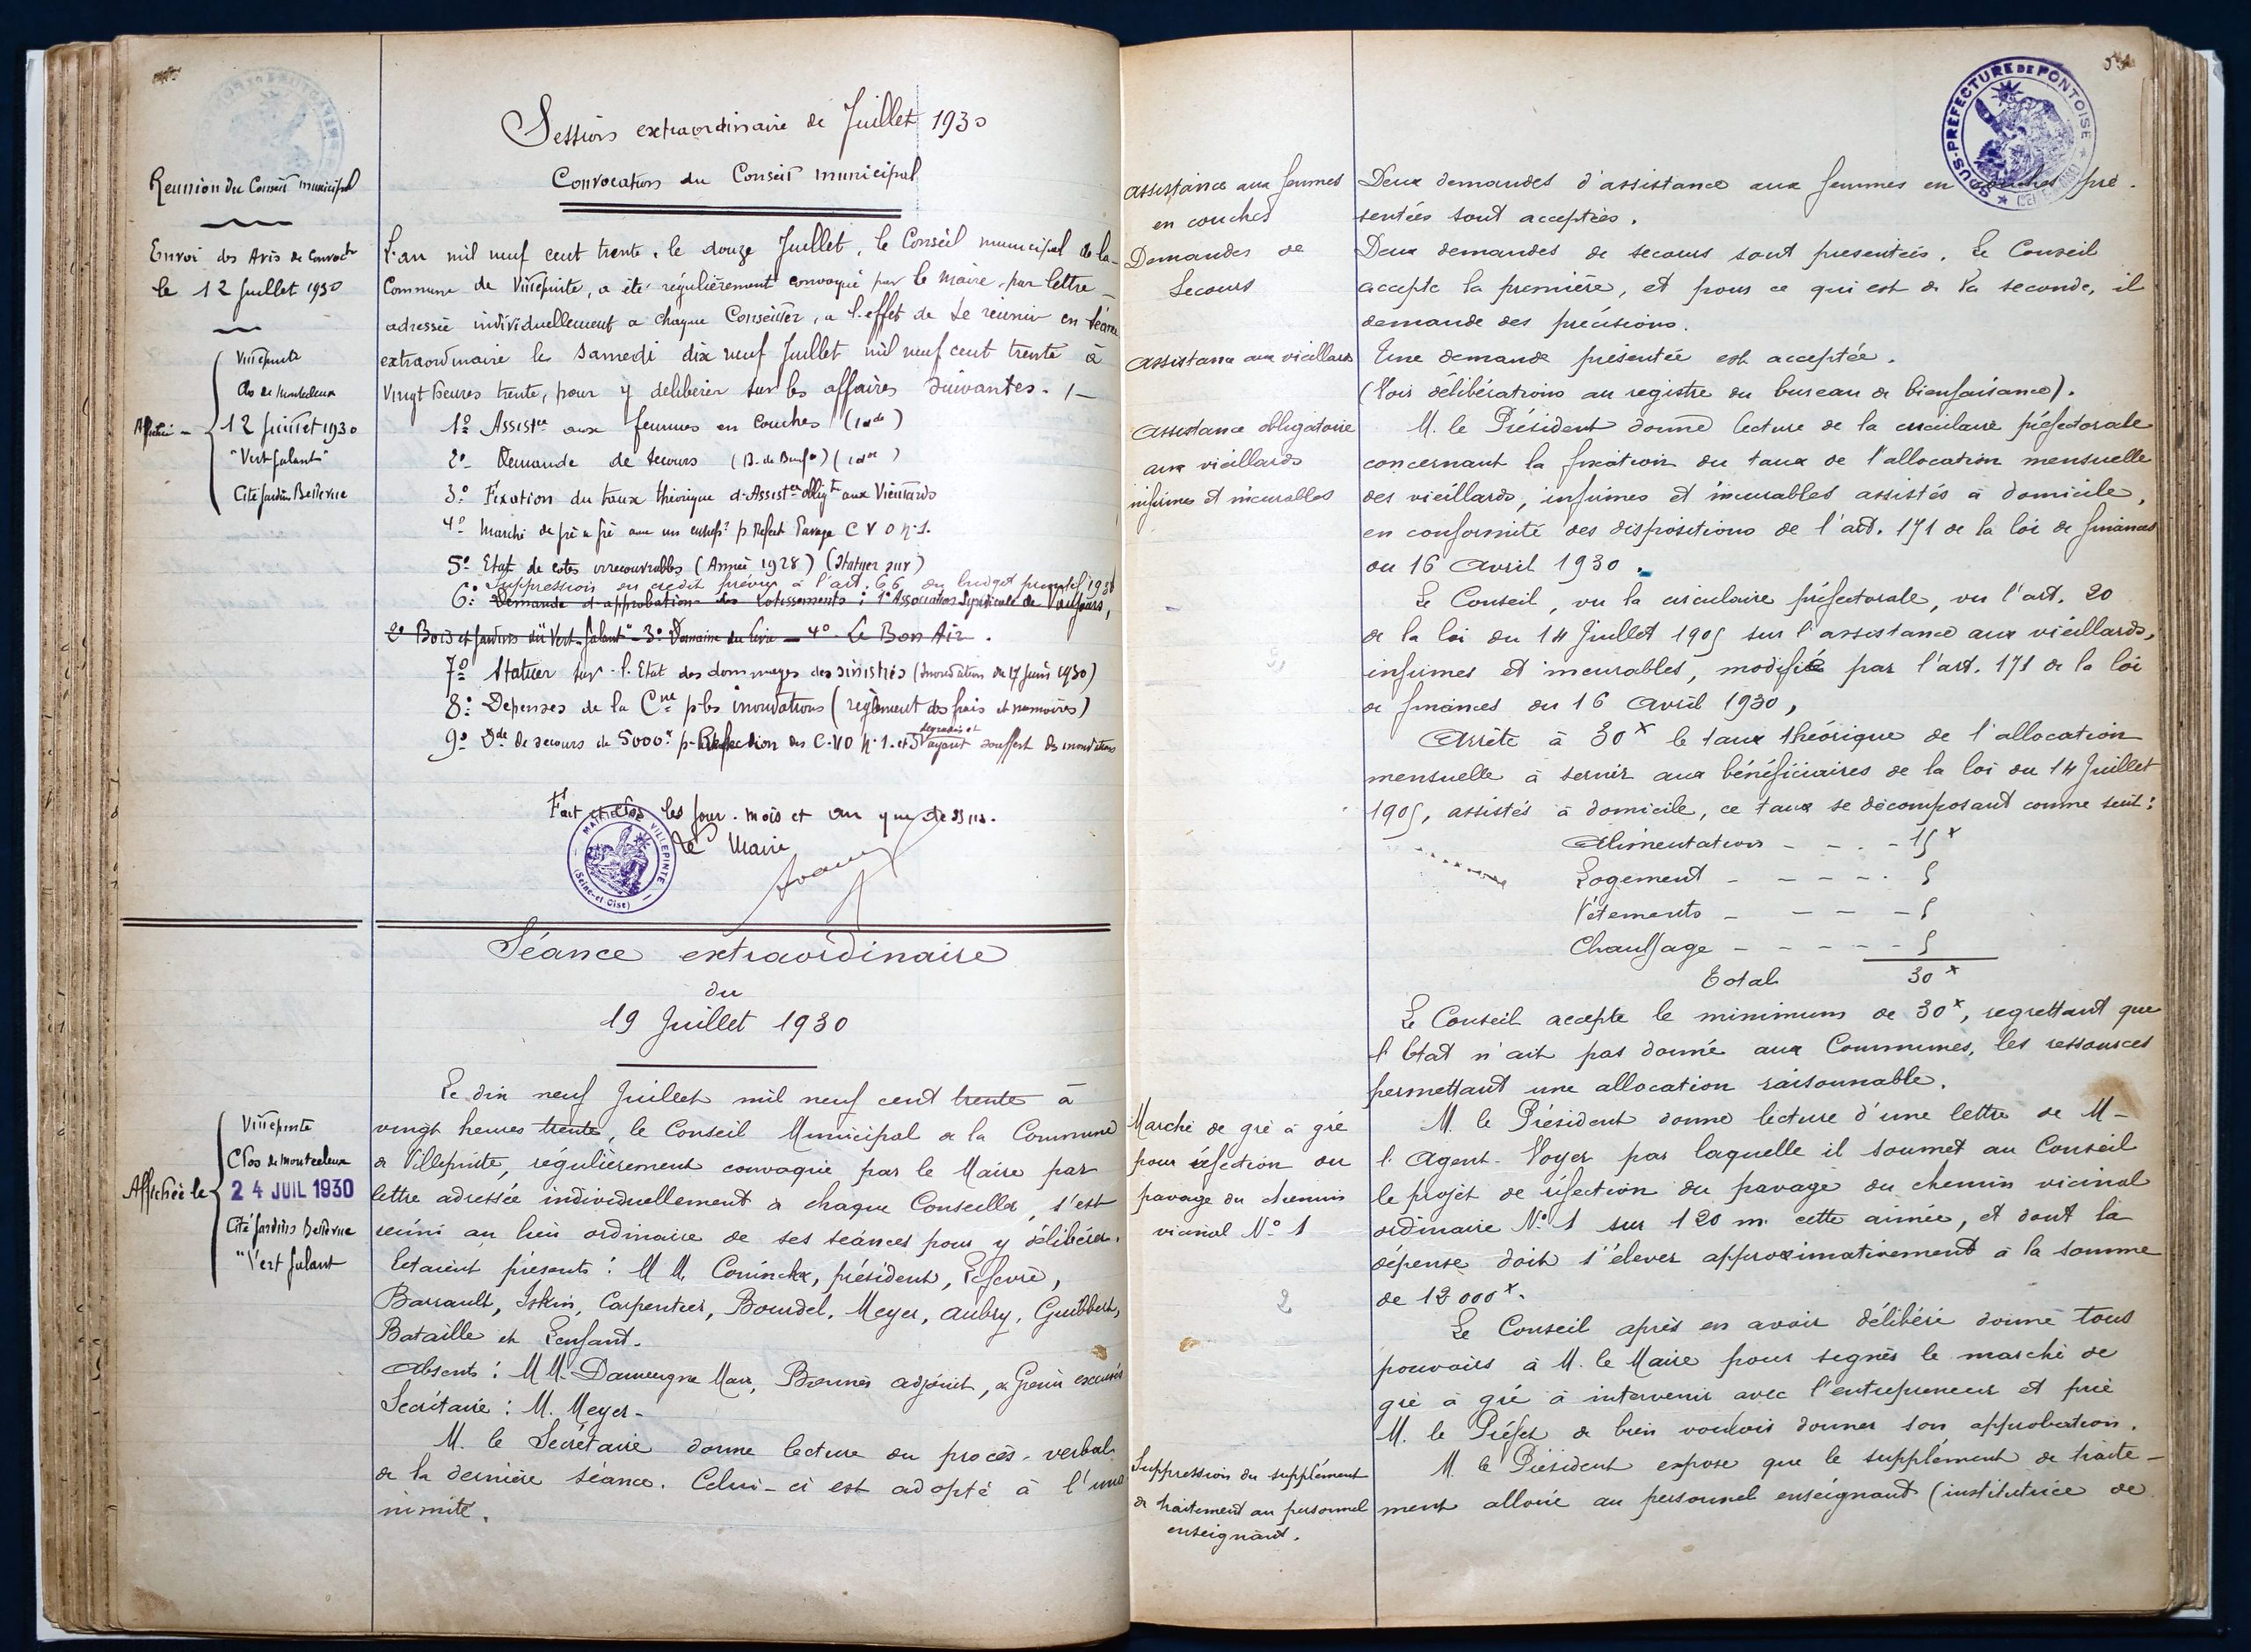 Session extraordinaire de Juillet 1930
Convocation du Conseil municipal
Reunion du Conseil municipal
Envoi des Avis de Convocon
le 12 Juillet 1930
Affiché -
Villepinte
Clos de Montceleux
12 Juillet 1930
"Vert galant"
Cité Jardin Bellevue
L'an mil neuf cent trente, le douze Juillet, le Conseil municipal de la
Commune de Villepinte, a été régulièrement convoqué par le maire, par lettre
adressée individuellement a chaque Conseiller, a l'effet de se réunir en séance
extraordinaire le Samedi dix neuf Juillet mil neuf cent trente à
vingt heures trente, pour y delibérer sur les affaires suivantes. /-
1º Assistce aux femmes en Couches (1 dde)
2º Demande de secours (B. de Bienfce) (1 dde)
3º Fixation du taux théorique d'Assistce obligt aux Vieillards
4º Marché de gré a gré avec un entrepr p. Refect Pavage C V O nº 1.
5º Etat de cotes irrecouvrables (Année 1928) (Statuer sur)
Suppression du credit prévu à l'art. 66 du budget primitif 1930
6º Demande d'approbation des lotissements : 1º Association Syndicale de Vaujours,
2º Bois et Jardins du Vert-galant" - 3º Domaine du - 4º Le Bon Air.
7º Statuer sur l'Etat des dommages des sinistrés (inondation du 17 Juin 1930)
8º Depenses de la Cne p. les inondations (règlement des frais et memoires)
9º Dde de secours de 5000f p. Refection des C.V.O nº 1. et 5 degradés et ayant souffert des inondations
Fait et clos les jour, mois et an que dessus.
Le Maire
MAIRIE DE VILLEPINTE
(Seine-et-Oise)
Séance extraordinaire
du
19 Juillet 1930
Affichée le
Villepinte
Clos de Montceleux
24 JUIL 1930
Cité Jardins Bellevue
"Vert galant
Le dix neuf Juillet mil neuf cent trente à
vingt heures trente, le Conseil Municipal de la Commune
de Villepinte, régulièrement convoqué par le Maire par
lettre adressée individuellement à chaque Conseiller, s'est
réuni au lieu ordinaire de ses séances pour y délibérer.
Etaient présents : M M. Coninckx, président, Lefevre,
Barrault, Iskin, Carpentier, Bourdel, Meyer, Aubry, Guibbert,
Bataille et Lenfant.
Absents : M M. Dauvergne Maire, adjoint, & Grenier excusés
Secrétaire : M. Meyer -
M. le Secrétaire donne lecture du procès-verbal
de la dernière séance. Celui-ci est adopté à l'una
nimité.
SOUS-PRÉFECTURE DE PONTOISE
Assistance aux femmes
en couches
Deux demandes d'assistance aux femmes en couches pré-
sentées sont acceptées.
Demandes de
Secours
Deux demandes de secours sont presentées. Le Conseil
accepte la première, et pour ce qui est de la seconde, il
demande des précisions.
Assistance aux vieillards
Une demande présentée est acceptée.
(Voir délibérations au registre du bureau de bienfaisance).
Assistance obligatoire
aux vieillards
infirmes et incurables
M. le Président donne lecture de la circulaire préfectorale
concernant la fixation du taux de l'allocation mensuelle
des vieillards, infirmes et incurables assistés à domicile,
en conformité des dispositions de l'art. 171 de la loi de finances
du 16 Avril 1930.
Le Conseil, vu la circulaire préfectorale, vu l'art. 20
de la loi du 14 Juillet 1905 sur l'assistance aux vieillards,
infirmes et incurables, modifiée par l'art. 171 de la loi
de finances du 16 Avril 1930,
Arrête à 30f le taux théorique de l'allocation
mensuelle à servir aux bénéficiaires de la loi du 14 Juillet
1905, assistés à domicile, ce taux se décomposant comme suit :
Alimentation - - - - 15f
Logement - - - - - 5
Vêtements - - - - 5
Chauffage - - - - - 5
Total 30f
Le Conseil accepte le minimum de 30f, regrettant que
l'Etat n'ait pas donné aux Communes, les ressources
permettant une allocation raisonnable.
Marché de gré à gré
pour réfection du
pavage du chemin
vicinal Nº 1
2
M. le Président donne lecture d'une lettre de M-
l'Agent-Voyer par laquelle il soumet au Conseil
le projet de réfection du pavage du chemin vicinal
ordinaire Nº 1 sur 120 m. cette année, et dont la
dépense doit s'élever approximativement à la somme
de 12 000f.
Le Conseil après en avoir délibéré donne tous
pouvoirs à M. le Maire pour signer le marché de
gré à gré à intervenir avec l'entrepreneur et prie
M. le Préfet de bien vouloir donner son approbation.
Suppression du supplément
de traitement au personnel
enseignant.
M. le Président expose que le supplément de traite-
ment alloué au personnel enseignant (institutrice de